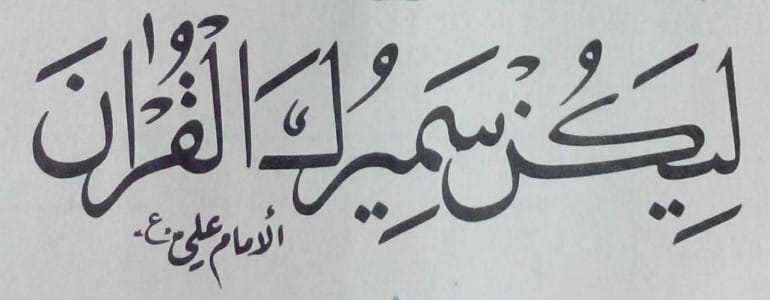 لِيَكُنْ سَمِيرُكَ الْقُرْآنَ
الامام علي ؏